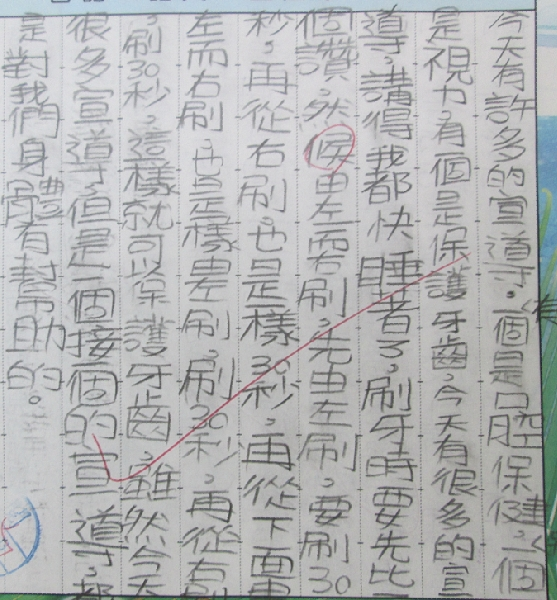 今天有許多的宣導。一個是口腔保健,一個
是視力,有個是保護牙齒,今天有很多的宣
導,講得我都快睡著了,刷牙時要先比一
個讚,然候由左而右刷,先由左刷,要刷30
秒,再從右刷,也是一樣30秒,再從下面由
左而右刷,也是樣畏刷,刷30秒,再從右刷
,刷30秒,這樣就可以保護牙齒,雖然今天
很多宣導,但是一個接個的宣導,都
是對我們身體有幫助的。